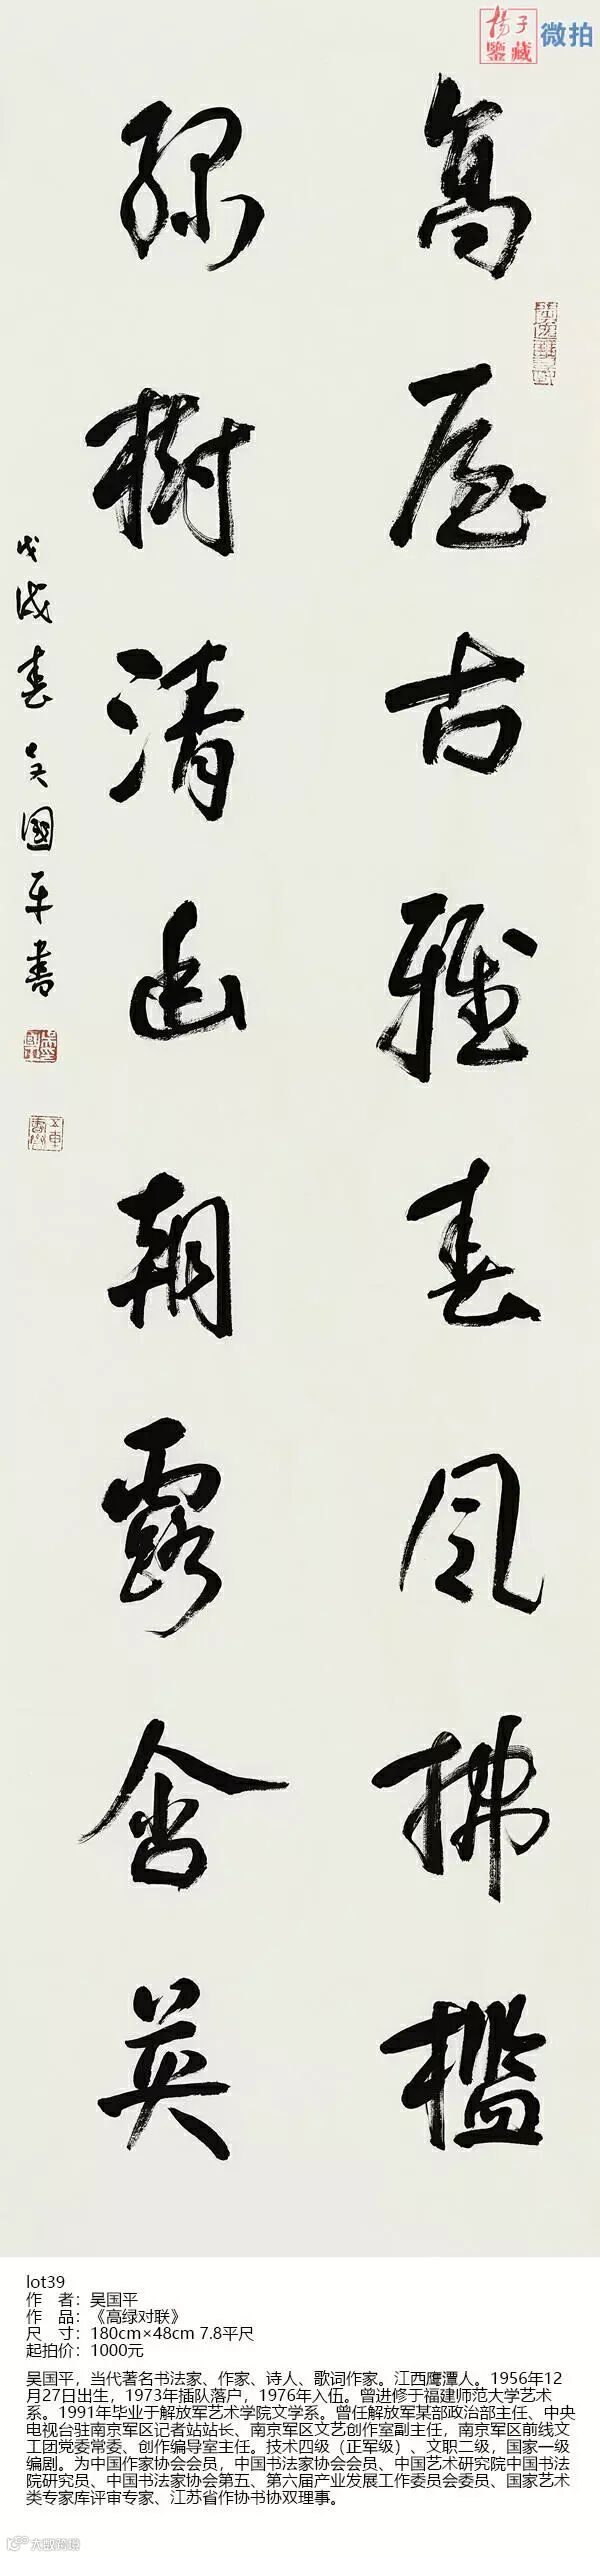 揚子
鑒藏
微拍
高屋古雅春風拂檻
綠樹清幽朝露含英
戊戌春吴國平書
lot39
作　者：吴国平
作　品：《高绿对联》
尺　寸：180cm×48cm 7.8平尺
起拍价：1000元
吴国平，当代著名书法家、作家、诗人、歌词作家。江西鹰潭人。1956年12
月27日出生，1973年插队落户，1976年入伍。曾进修于福建师范大学艺术
系。1991年毕业于解放军艺术学院文学系。曾任解放军某部政治部主任、中央
电视台驻南京军区记者站站长、南京军区文艺创作室副主任，南京军区前线文
工团党委常委、创作编导室主任。技术四级（正军级）、文职二级，国家一级
编剧。为中国作家协会会员，中国书法家协会会员、中国艺术研究院中国书法
院研究员、中国书法家协会第五、第六届产业发展工作委员会委员、国家艺术
类专家库评审专家、江苏省作协书协双理事。